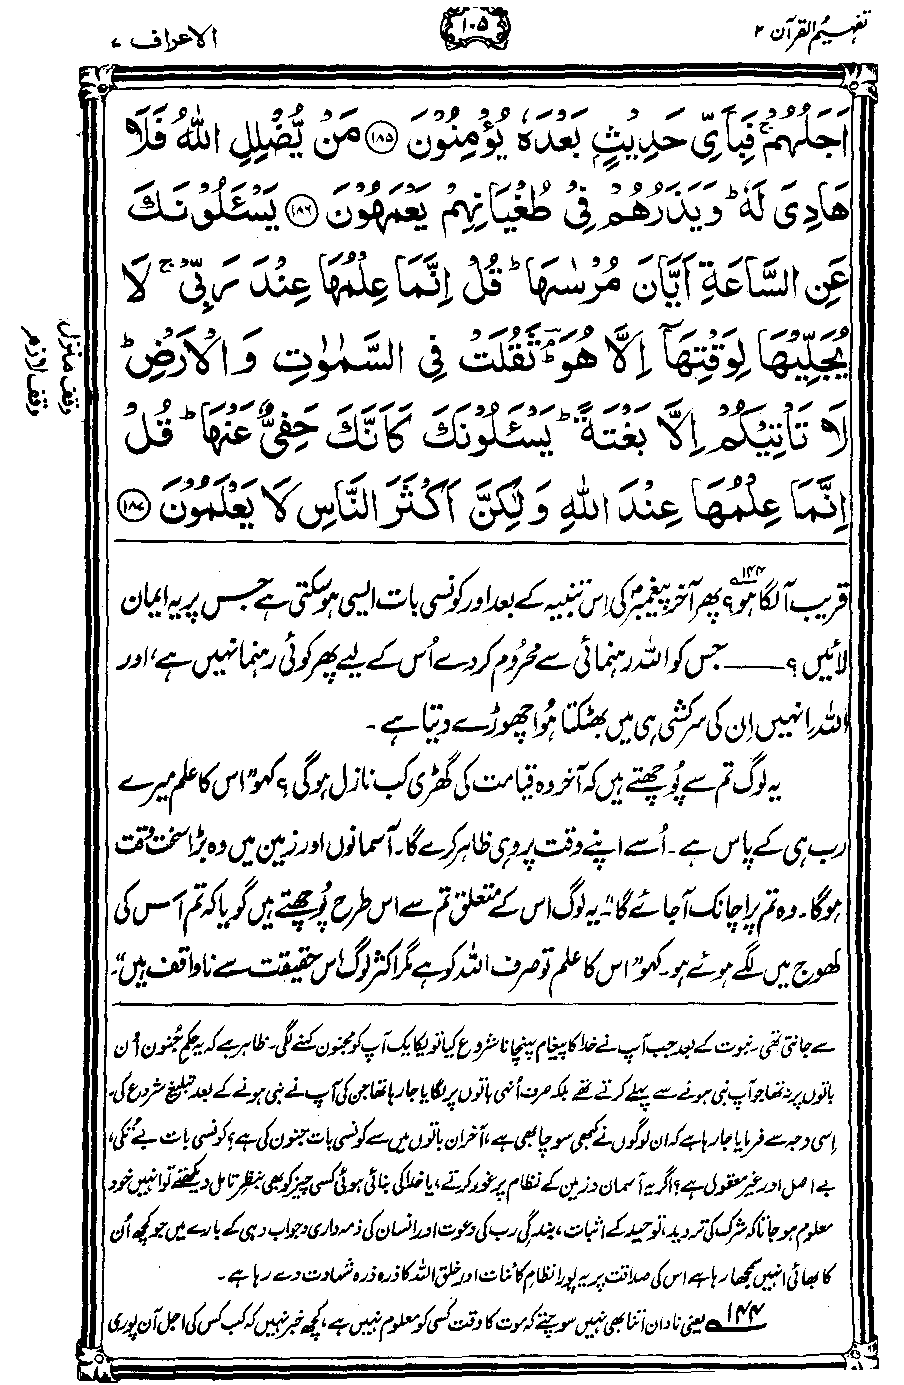 تفہیم القرآن ۲
۱۰۵
الاعراف ۷
اَجَلُهُمْ ۚ فَبِاَيِّ حَدِيْثٍۭ بَعْدَهٗ يُؤْمِنُوْنَ ﴿۱۸۵﴾ مَنْ يُّضْلِلِ اللّٰهُ فَلَا
هَادِيَ لَهٗ ؕ وَيَذَرُهُمْ فِيْ طُغْيَانِهِمْ يَعْمَهُوْنَ ﴿۱۸۶﴾ يَسْـَٔلُوْنَكَ
عَنِ السَّاعَةِ اَيَّانَ مُرْسٰىهَا ؕ قُلْ اِنَّمَا عِلْمُهَا عِنْدَ رَبِّيْ ۚ لَا
يُجَلِّيْهَا لِوَقْتِهَاۤ اِلَّا هُوَ ؔۘ ثَقُلَتْ فِي السَّمٰوٰتِ وَالْاَرْضِ ؕ
لَا تَاْتِيْكُمْ اِلَّا بَغْتَةً ؕ يَسْـَٔلُوْنَكَ كَاَنَّكَ حَفِيٌّ عَنْهَا ؕ قُلْ
اِنَّمَا عِلْمُهَا عِنْدَ اللّٰهِ وَلٰكِنَّ اَكْثَرَ النَّاسِ لَا يَعْلَمُوْنَ ﴿۱۸۷﴾
وقف منزل
وقف لازم
قریب آلگا ہو؟۱۴۴ پھر آخر پیغمبرؐ کی اِس تنبیہ کے بعد اور کونسی بات ایسی ہو سکتی ہے جس پر یہ ایمان
لائیں؟ ــــــ جس کو اللہ رہنمائی سے محرُوم کر دے اُس کے لیے پھر کوئی رہنما نہیں ہے، اور
اللہ اِنہیں اِن کی سرکشی ہی میں بھٹکتا ہُوا چھوڑے دیتا ہے۔
یہ لوگ تم سے پُوچھتے ہیں کہ آخر وہ قیامت کی گھڑی کب نازل ہوگی؟ کہو "اس کا علم میرے
رب ہی کے پاس ہے۔ اُسے اپنے وقت پر وہی ظاہر کرے گا۔ آسمانوں اور زمین میں وہ بڑا سخت وقت
ہوگا۔ وہ تم پر اچانک آجائے گا"۔ یہ لوگ اس کے متعلق تم سے اس طرح پُوچھتے ہیں گویا کہ تم اُس کی
کھوج میں لگے ہوئے ہو۔ کہو "اس کا علم تو صرف اللہ کو ہے مگر اکثر لوگ اس حقیقت سے ناواقف ہیں"۔
سے جانتی تھی۔ نبوت کے بعد جب آپ نے خدا کا پیغام پہنچانا شروع کیا تو یکایک آپ کو مجنون کہنے لگی۔ ظاہر ہے کہ یہ حکمِ جُنون اُن
باتوں پر نہ تھا جو آپ نبی ہونے سے پہلے کرتے تھے بلکہ صرف اُنہی باتوں پر لگایا جا رہا تھا جن کی آپ نے نبی ہونے کے بعد تبلیغ شروع کی۔
اِسی وجہ سے فرمایا جا رہا ہے کہ ان لوگوں نے کبھی سوچا بھی ہے، آخر ان باتوں میں سے کونسی بات جنون کی ہے؟ کونسی بات بے تُکی،
بے اصل اور غیر معقول ہے؟ اگر یہ آسمان و زمین کے نظام پر غور کرتے، یا خدا کی بنائی ہوئی کسی چیز کو بھی بنظرِ تامل دیکھتے تو انہیں خود
معلوم ہو جاتا کہ شرک کی تردید، توحید کے اثبات، بندگیِ رب کی دعوت اور انسان کی ذمہ داری و جواب دہی کے بارے میں جو کچھ اُن
کا بھائی انہیں سمجھا رہا ہے اس کی صداقت پر یہ پورا نظامِ کائنات اور خلق اللہ کا ذرہ ذرہ شہادت دے رہا ہے۔
۱۴۴ یعنی نادان اتنا بھی نہیں سوچتے کہ موت کا وقت کسی کو معلوم نہیں ہے، کچھ خبر نہیں کہ کب کس کی اجل آن پوری